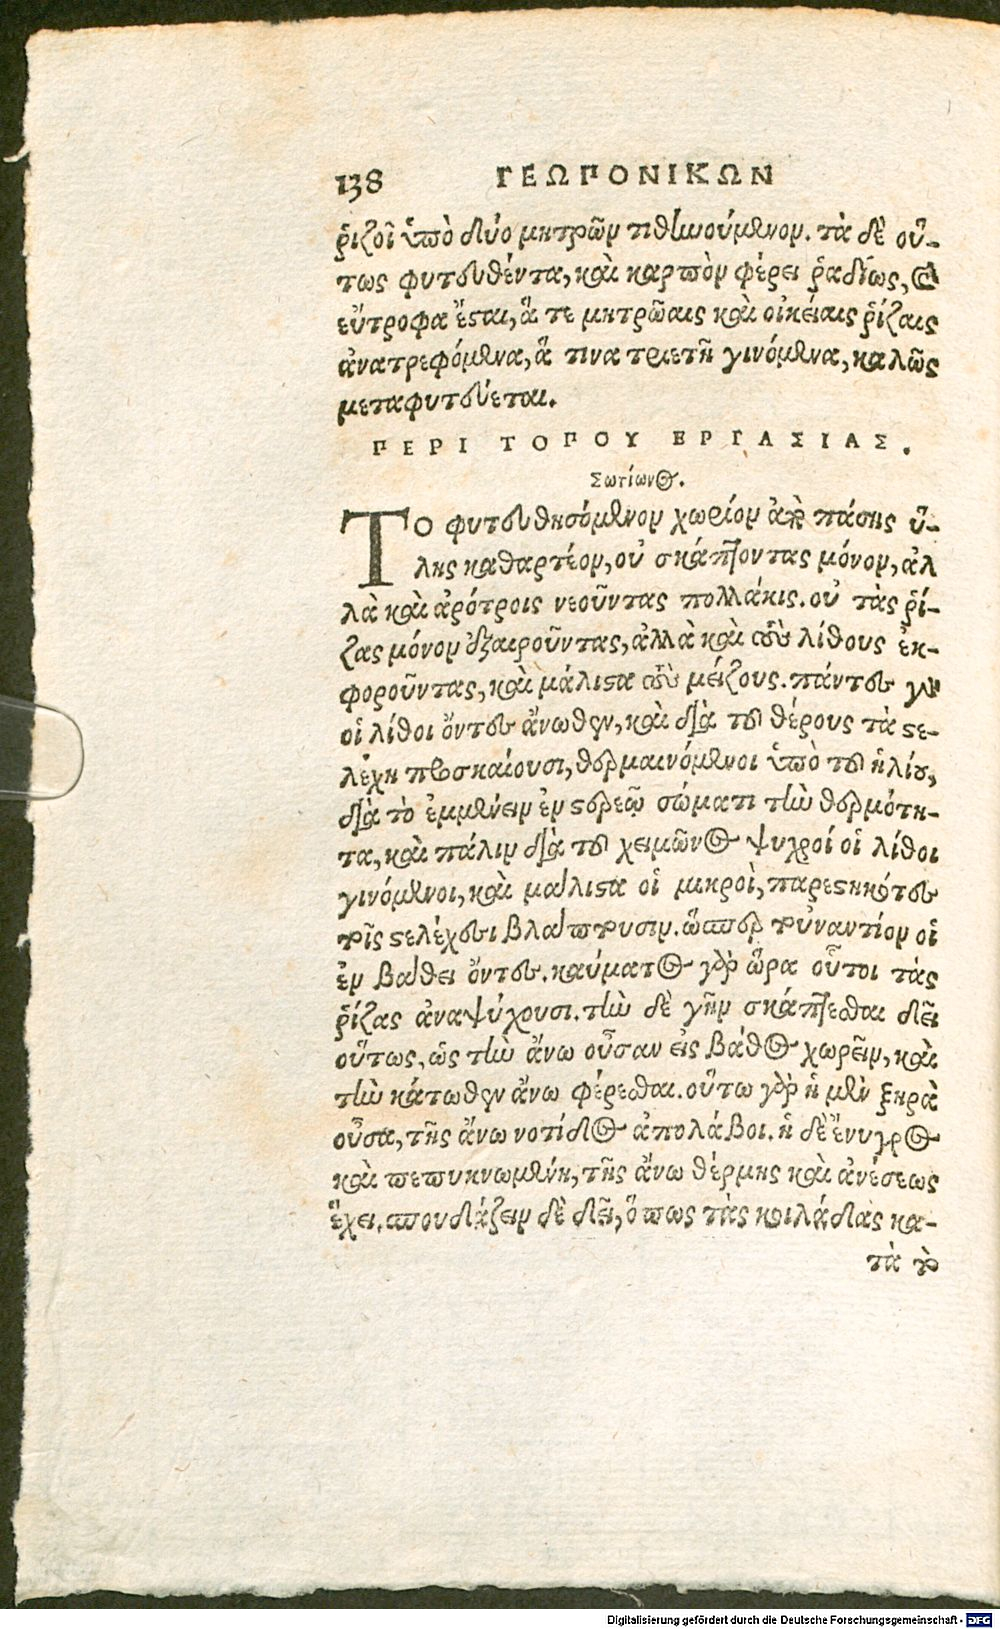 138 ΓΕΩΠΟΝΙΚΩΝ
ῥιζοῖ ὑπὸ δύο μητρῶν τιθηνούμενον. τὰ δὲ οὕ-
τως φυτευθέντα, καὶ καρπὸν φέρει ῥαδίως, καὶ
εὔτροφα ἔσται, ἅ τε μητρῶαις καὶ οἰκείαις ῥίζαις
ἀνατρεφόμενα, ἅ τινα τριετῆ γινόμενα, καλῶς
μεταφυτεύεται.
ΠΕΡΙ ΤΟΠΟΥ ΕΡΓΑΣΙΑΣ.
Σωτίωνος.
ΤΟ φυτευθησόμενον χωρίον ἀπὸ πάσης ὕ-
λης καθαρτέον, οὐ σκάπτοντας μόνον, ἀλ
λὰ καὶ ἀρότροις νεοῦντας πολλάκις. οὐ τὰς ῥί-
ζας μόνον ἐξαιροῦντας, ἀλλὰ καὶ τοὺς λίθους ἐκ-
φοροῦντας, καὶ μάλιστα τοὺς μείζους. πάντες γὰρ
οἱ λίθοι ὄντες ἄνωθεν, καὶ διὰ τοῦ θέρους τὰ στε-
λέχη προσκαίουσι, θερμαινόμενοι ὑπὸ τοῦ ἡλίου,
διὰ τὸ ἐμμένειν ἐν στερεῷ σώματι τὴν θερμότη-
τα, καὶ πάλιν διὰ τοῦ χειμῶνος ψυχροί οἱ λίθοι
γινόμενοι, καὶ μάλιστα οἱ μικροὶ, παρεστηκότες
τοῖς στελέχεσι βλάπτουσιν. ὥσπερ τοὐναντίον οἱ
ἐν βάθει ὄντες. καύματος γὰρ ὥρα οὗτοι τὰς
ῥίζας ἀναψύχουσι. τὴν δὲ γῆν σκάπτεσθαι δεῖ
οὕτως, ὡς τὴν ἄνω οὖσαν εἰς βάθος χωρεῖν, καὶ
τὴν κάτωθεν ἄνω φέρεσθαι. οὕτω γὰρ ἡ μὲν ξηρὰ
οὖσα, τῆς ἄνω νοτίδος ἀπολάβοι. ἡ δὲ ἔνυγρος
καὶ πεπυκνωμένη, τῆς ἄνω θέρμης καὶ ἀνέσεως
ἔχει. σπουδάζειν δὲ δεῖ, ὅπως τὰς κοιλάδας κα-
τὰ τὸ
Digitalisierung gefördert durch die Deutsche Forschungsgemeinschaft - DFG